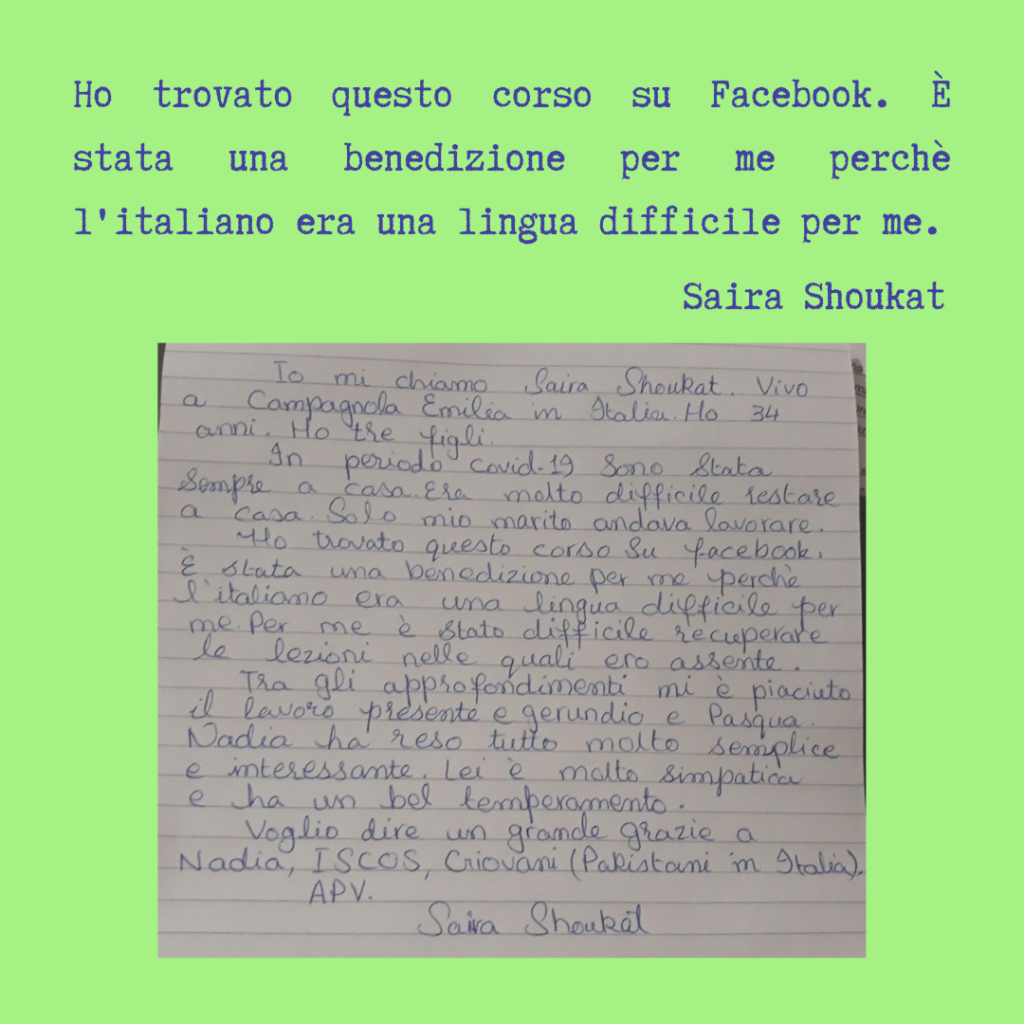 Ho trovato questo corso su Facebook. È
stata una benedizione per me perchè
l'italiano era una lingua difficile per me.
Saira Shoukat
Io mi chiamo Saira Shoukat. Vivo
a Campagnola Emilia in Italia. Ho 34
anni. Ho tre figli.
In periodo covid-19 sono stata
sempre a casa. Era molto difficile restare
a casa. Solo mio marito andava lavorare.
Ho trovato questo corso su facebook.
È stata una benedizione per me perchè
l'italiano era una lingua difficile per
me. Per me è stato difficile recuperare
le lezioni nelle quali ero assente.
Tra gli approfondimenti mi è piaciuto
il lavoro presente e gerundio e Pasqua.
Nadia ha reso tutto molto semplice
e interessante. Lei è molto simpatica
e ha un bel temperamento.
Voglio dire un grande grazie a
Nadia, ISCOS, Giovani (Pakistani in Italia).
APV.
Saira Shoukat